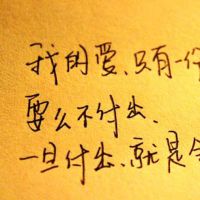 我的爱、只有一
要么不付出、
一旦付出、就是